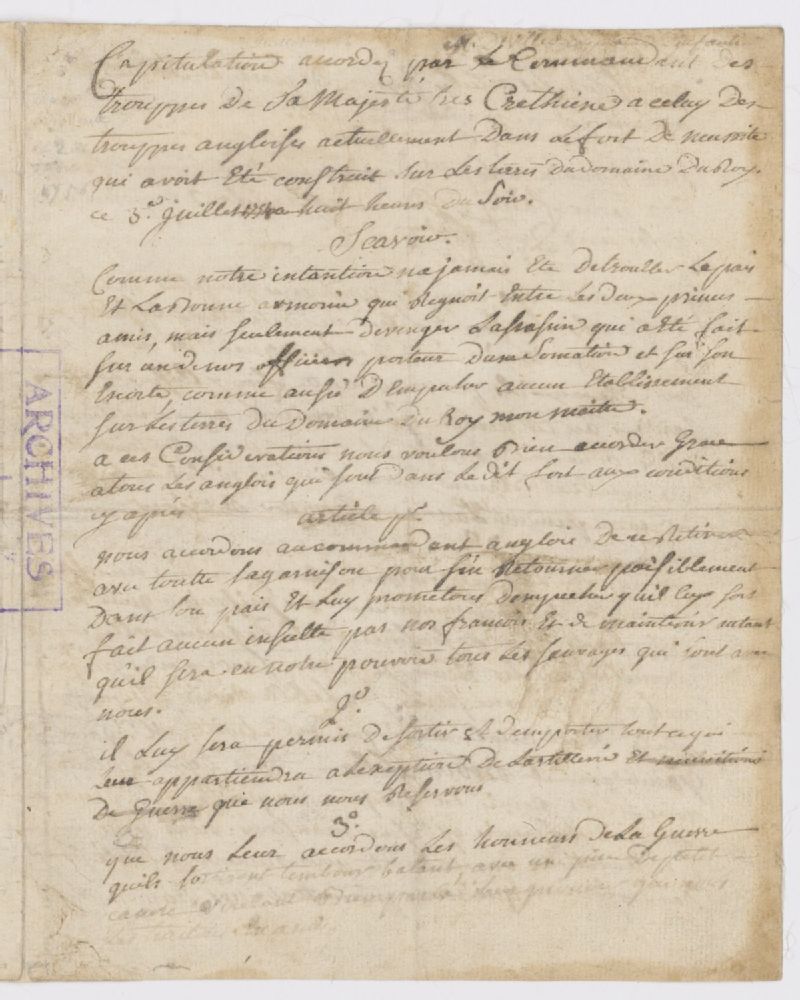 Capitulation accordez par Le Commandant des
trouppes De Sa Majesté tres Crethiene a celuy Des
trouppes angloises actuellement Dans Le fort De necessité
qui avoit Eté construit Sur Les terres du Domaine Du Roy.
ce 3e. juillet 1754 a huit heures Du Soir.
Scavoir.
Comme notre intantion na jamais Eté De troubler La paix
Et La Bonne armonie qui Regnoit Entre Les deux princes
amis, mais seulement De venger Lassassin qui a été fait
sur un de nos officiers porteur Dune Somation et sur son
Escorte, comme aussi D'Empecher aucun Etablissement
sur Les terres Du Domaine Du Roy mon maitre.
a ces Considerations nous voulons Bien accorder Grace
a tous Les anglois qui sont Dans Le dit fort aux conditions
cy aprés
article 1er.
nous accordons au commandant anglois De se Retirer
avec toutte sa garnison pour s'en Retourner paisiblement
Dans son pais Et Luy prometons D'empecher qu'il Luy soit
fait aucun insulte par nos francois Et de maintenir autant
qu'il sera en notre pouvoir tous Les sauvages qui sont avec
nous.
2o
il Luy sera permis De sortir Et D'emporter tout ce qui
Leur appartiendra a L'exeption De Lartillerie Et munitions
De Guerre que nous nous Reservons
3o.
que nous Leur accordons Les honneurs De La Guerre
quils sortiront tambour batant, avec un piece De petit
canon
ARCHIVES